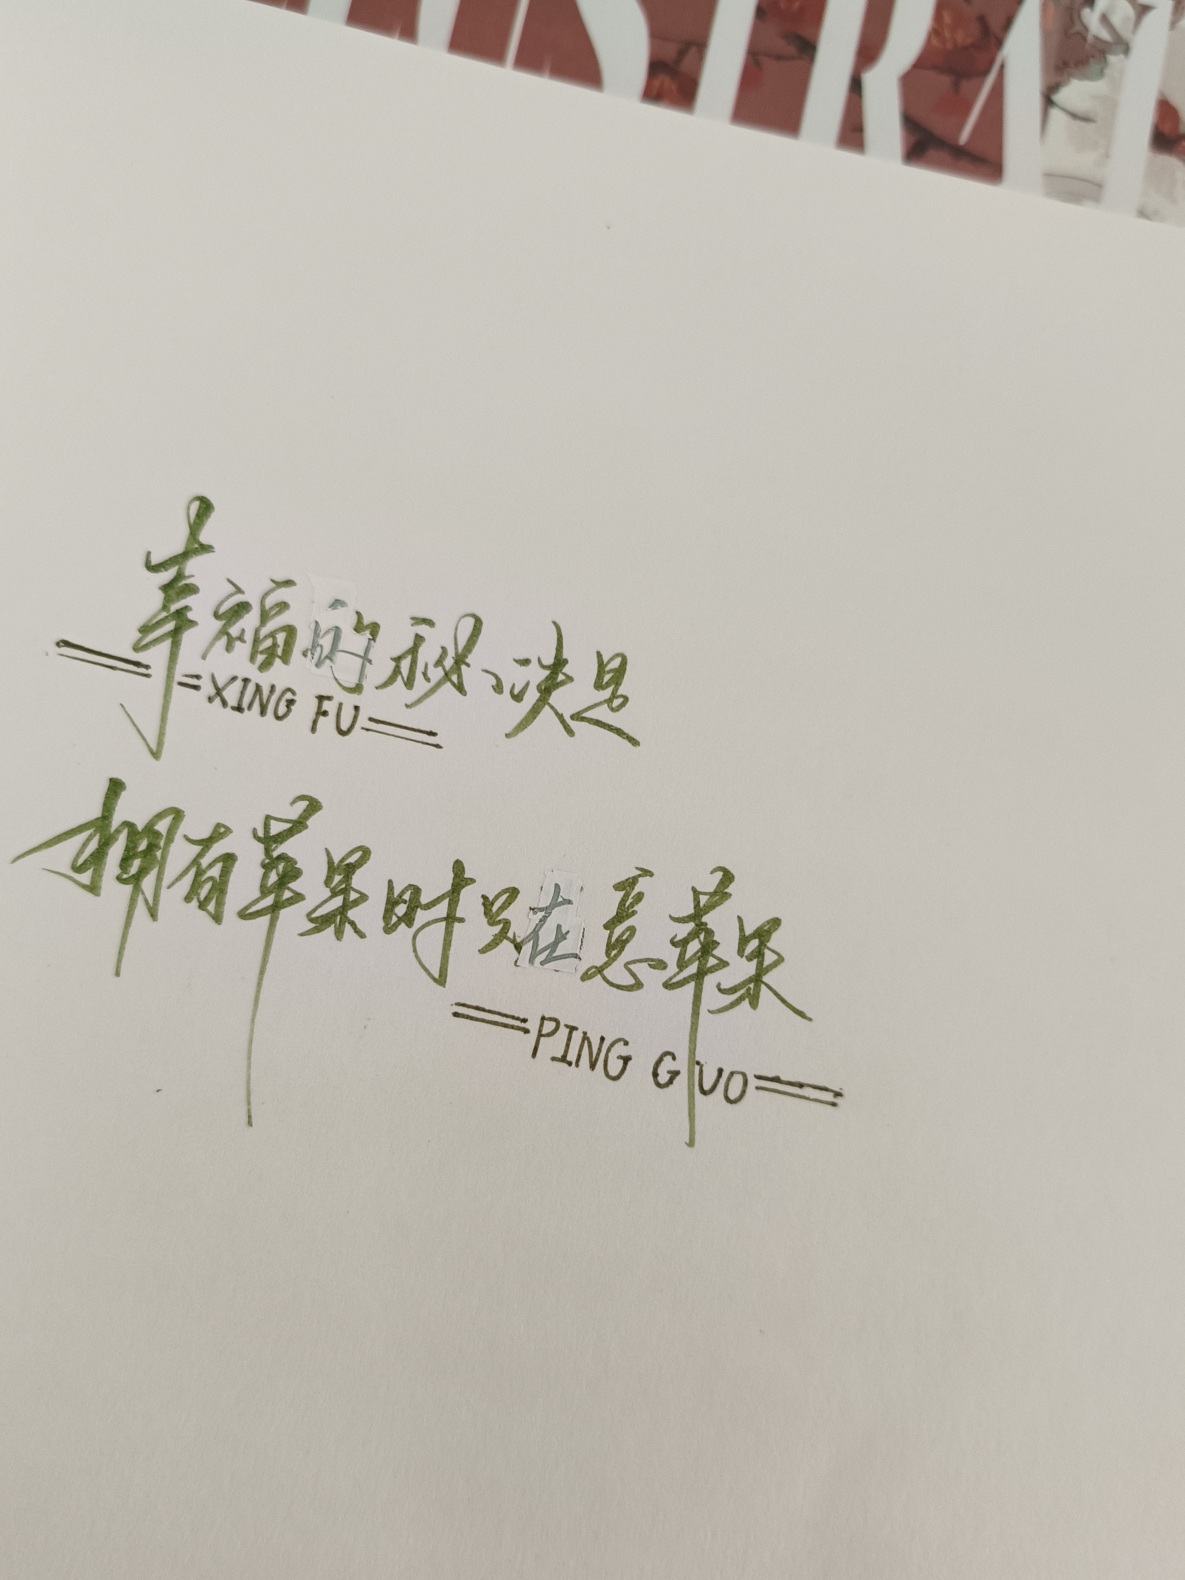 幸福的秘诀是
XING FU
拥有苹果时只在意苹果
PING GUO